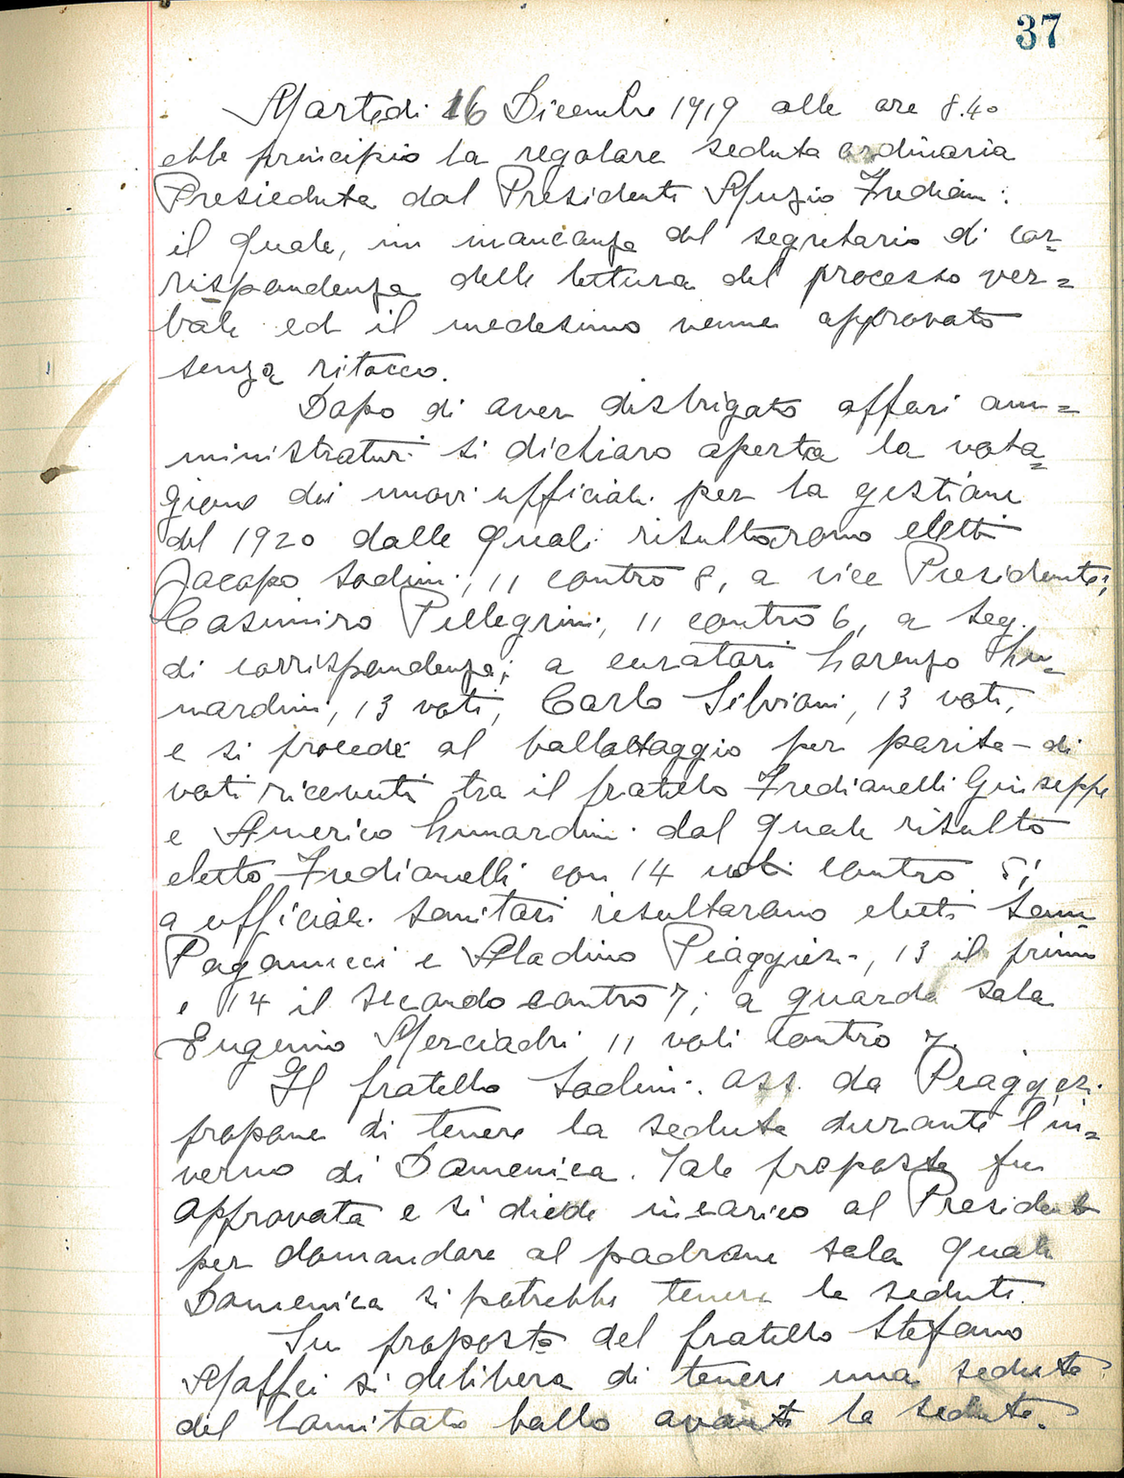 37
Martedi 16 Dicembre 1919 alle ore 8.40
ebbe principio la regolare seduta ordinaria
Presieduta dal Presidente Muzio Frediani:
il quale, in mancanza del segretario di cor=
rispondenza delle lettura del processo ver=
bale ed il medesimo venne approvato
senza ritocco.
Dopo di aver disbrigato affari am=
ministrativi si dichiaro aperta la vota=
zione dei nuovi ufficiali per la gestione
del 1920 dalle quali risultarono eletti
Jacopo Sodini, 11 contro 8, a vice Presidente;
Casimiro Pellegrini, 11 contro 6, a Seg.
di corrispondenza; a curatori Lorenzo Lu=
nardini, 13 voti, Carlo Silviani, 13 voti,
e si procede al ballottaggio per parita di
voti ricevuti tra il fratello Fredianelli Giuseppe
e Americo Lunardini dal quale risulto
eletto Fredianelli con 14 voti contro 5;
a ufficiali sanitari risultarono eletti
Paganucci e Aladino Piaggesi, 13 il primo
e 14 il secondo contro 7; a guarda sala
Eugenio Merciadri 11 voti contro 7.
Il fratello Sodini ass. da Piaggesi
propone di tenere la seduta durante l'in=
verno di Domenica. Tale proposta fu
approvata e si diede incarico al Presidente
per domandare al padrone sala quale
Domenica si potrebbe tenere le sedute.
Su proposta del fratello Stefano
Maffei si delibera di tenere una seduta
del Comitato ballo avanti la seduta.